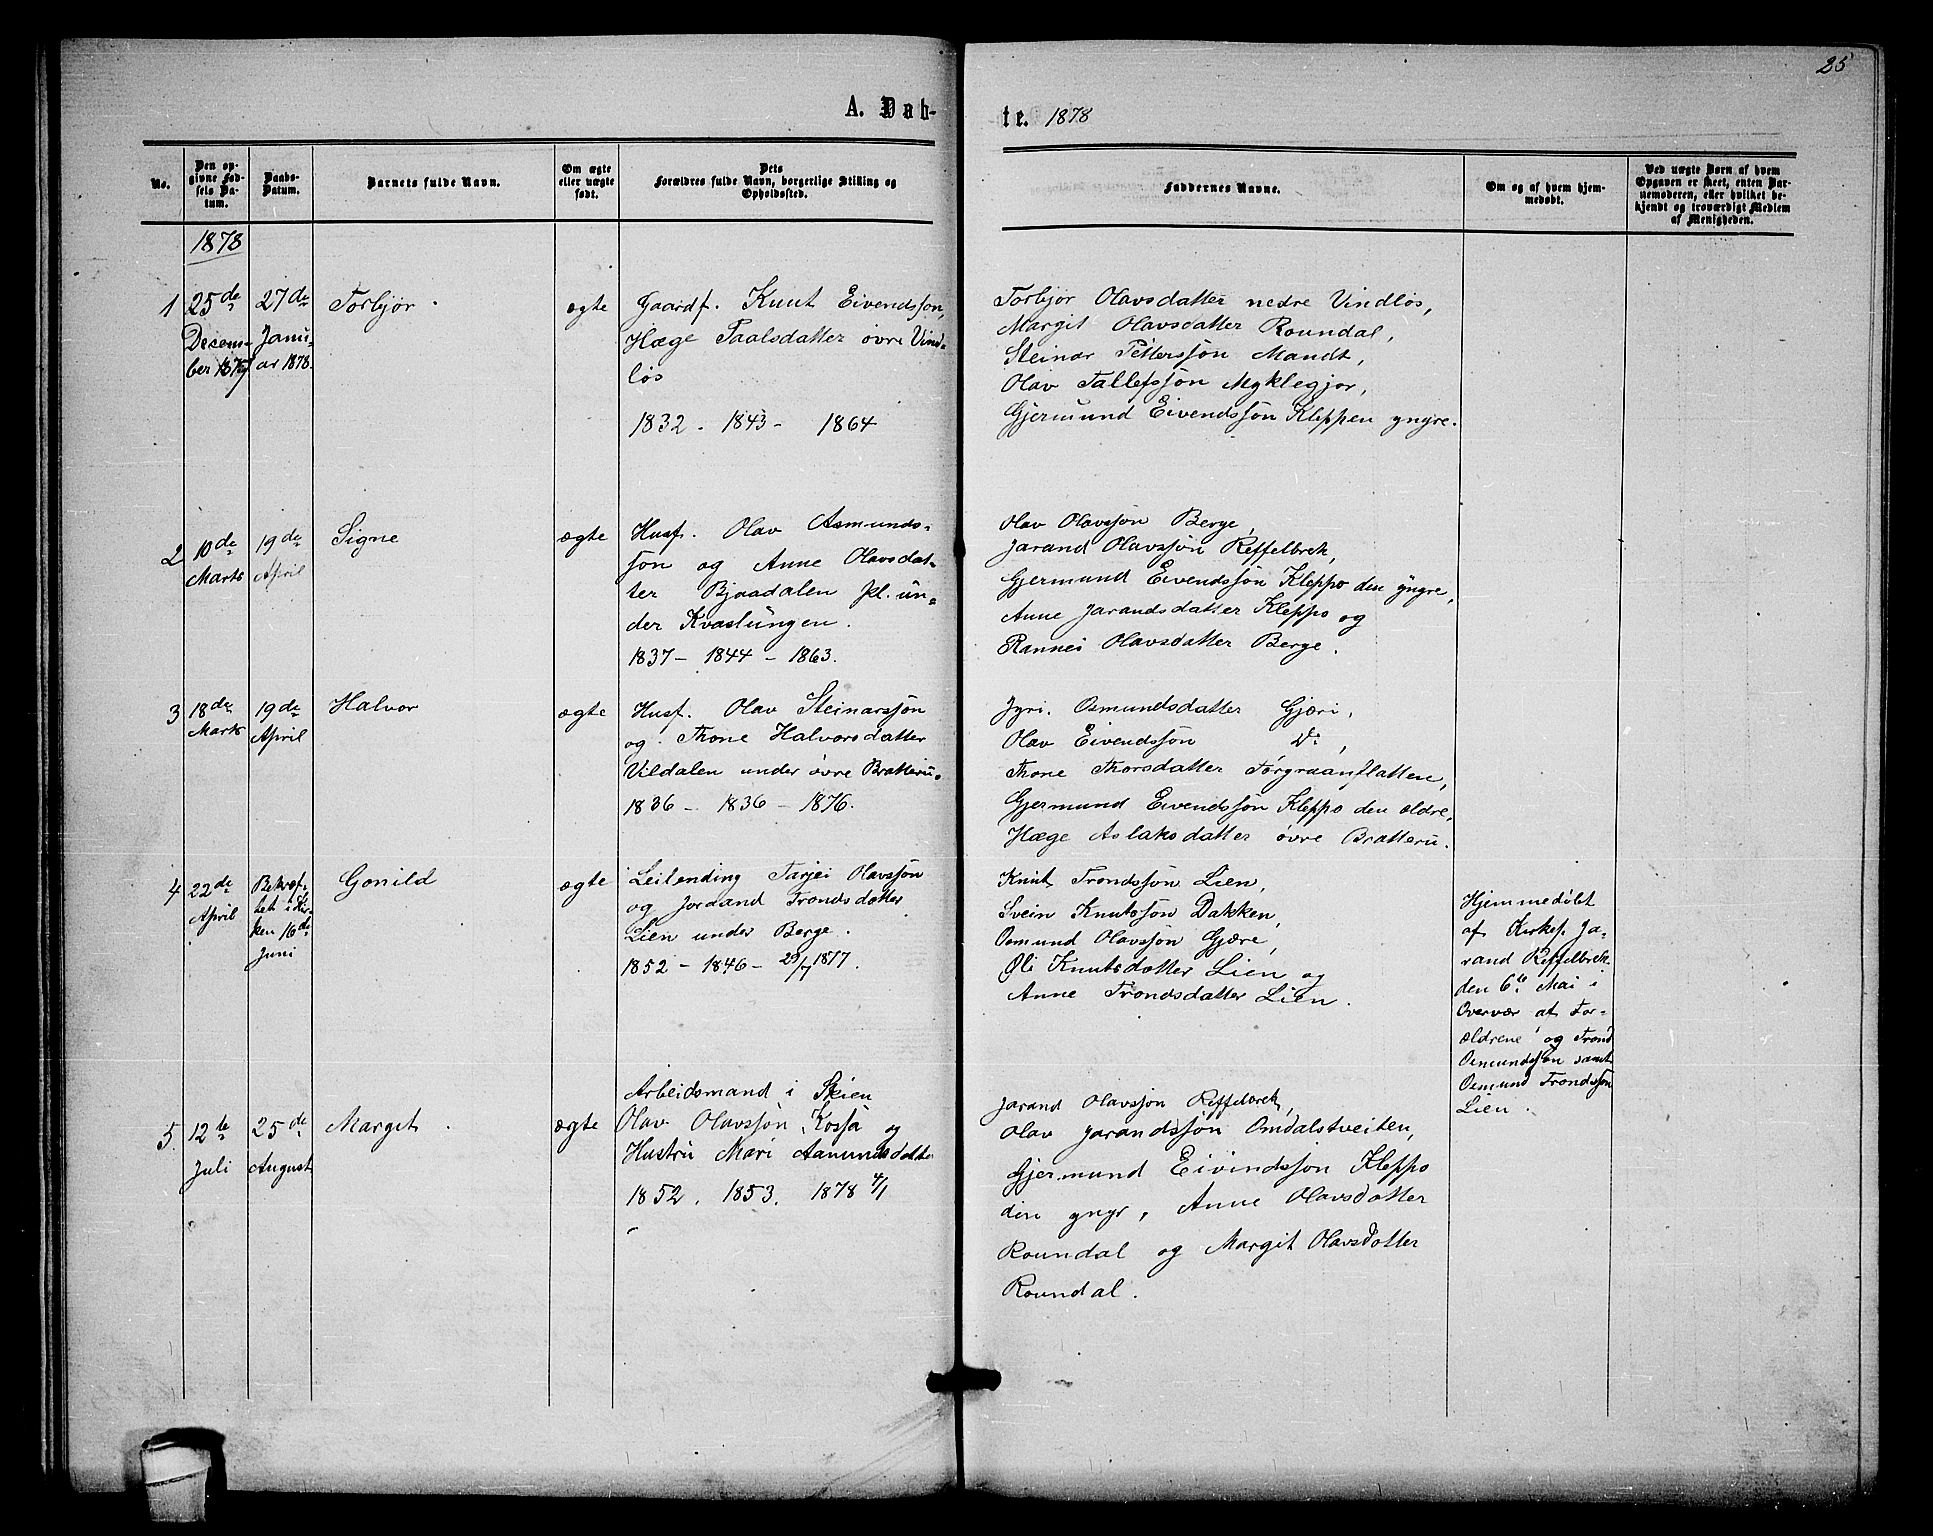 25
A. Døb-
te. 1878
No.
Den op-
givne Fød-
sels Da-
tum.
Daabs-
Datum.
Barnets fulde Navn.
Om ægte
eller uægte
født.
Dets
Forældres fulde Navn, borgerlige Stilling og
Opholdssted.
Faddernes Navne.
Om og af hvem hjem-
medøbt.
Ved uægte Børn af hvem
Opgaven er skeet, enten Bar-
nemoderen, eller hvilket be-
kjendt og troværdigt Medlem
af Menigheden.
1878
1
25de
Decem-
ber 1877
27de
Janu-
ar 1878.
Torbjør
ægte
Gaardf. Knut Eivendssøn,
Hæge Paalsdatter øvre Vind-
løs
1832 - 1843 - 1864
Torbjør Olavsdatter nedre Vindløs,
Margit Olavsdatter Roundal,
Steinar Petterssøn Mandt,
Olav Tallefssøn Myklegjor,
Gjermund Eivendssøn Kleppen yngre.
2
10de
Marts
19de
April
Signe
ægte
Husf. Olav Asmunds-
søn og Anne Olavsdat-
ter Bjaadalen pl. un-
der Kvaslungen.
1837 - 1844 - 1863.
Olav Olavssøn Berge,
Jarand Olavssøn Reffelbrek,
Gjermund Eivendssøn Kleppo den yngre,
Anne Jarandsdatter Kleppo og
Rannei Olavsdatter Berge.
3
18de
Marts
19de
April
Halvor
ægte
Husf. Olav Steinarssøn
og Thone Halvorsdatter
Vildalen under øvre Bratteru.
1836 - 1836 - 1876.
Jyri. Osmundsdatter Gjæri,
Olav Eivendssøn Do,
Thone Thorsdatter Torgraanflatten,
Gjermund Eivendssøn Kleppo den ældre,
Hæge Aslaksdatter øvre Bratteru.
4
22de
April
Bekræf-
tet i Kir-
ken 16de
Juni
Gonild
ægte
Leilending Tarjei Olavssøn
og Joraand Trondsdatter
Lien under Berge.
1852 - 1846 - 29/7 1877.
Knut Trondssøn Lien,
Svein Knutssøn Dakken,
Osmund Olavssøn Gjære,
Oli Knutsdatter Lien og
Anne Trondsdatter Lien.
Hjemmedøbt
af Kirkes. Ja-
rand Reffelbrek
den 6te Mai i
Overvær af For-
ældrene og Trond
Osmundssøn samt
Osmund Trondssøn
Lien.
5.
12te
Juli
25de
August
Margit
ægte
Arbeidsmand i Skien
Olav Olavssøn Kossa og
Hustru Mari Aamundsdatter
1852. 1853. 1878 4/1
Jarand Olavssøn Reffelbrek,
Olav Jarandssøn Omdalstveiten,
Gjermund Eivindssøn Kleppo
den yngr, Anne Olavsdotter
Roundal og Margit Olavsdotter
Roundal.